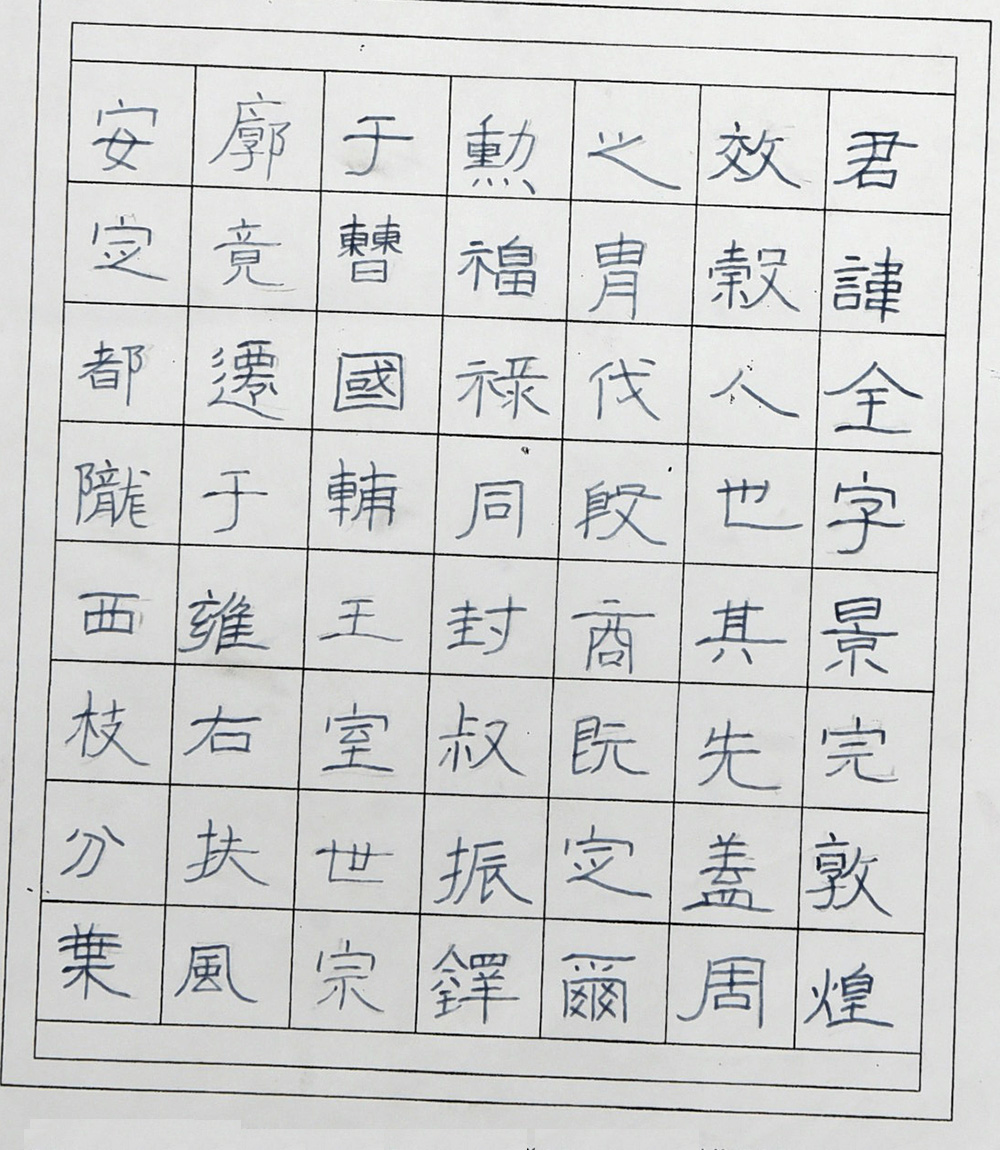 君諱全字景完敦煌
效穀人也其先蓋周
之胄伐殷商既定爾
勳福祿同封叔振鐸
于曹國輔王室世宗
廓竟遷于雍右扶風
安定都隴西枝分葉